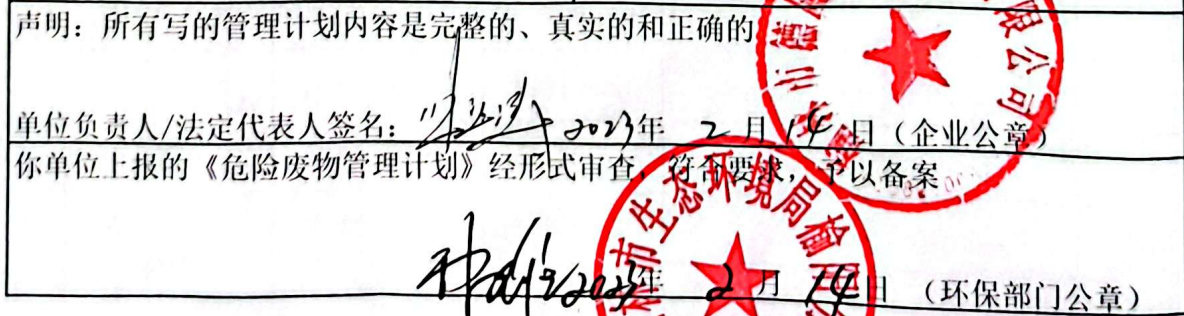 声明：所有写的管理计划内容是完整的、真实的和正确的
单位负责人/法定代表人签名： 2023年 2 月 14 日（企业公章）
你单位上报的《危险废物管理计划》经形式审查，符合要求，予以备案
2023年 2 月 14日 （环保部门公章）
限公司
市生态环境局榆阳